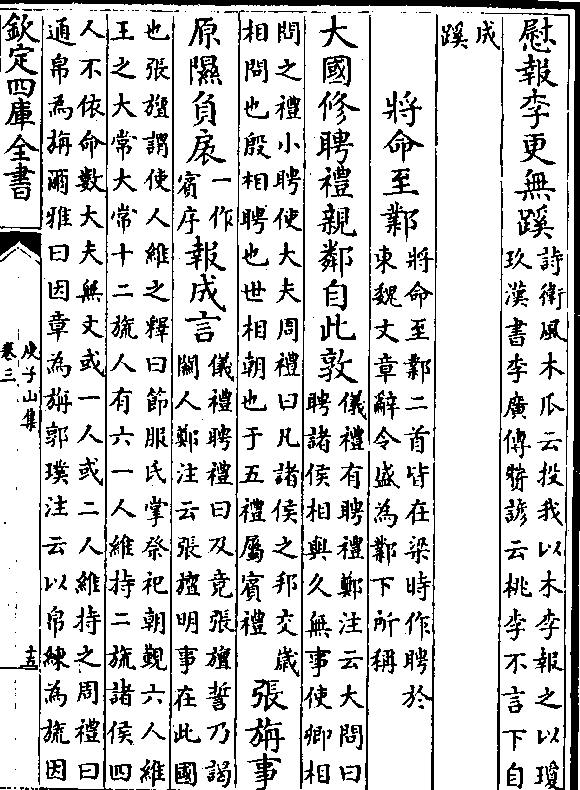 慰報李更無蹊詩衛風木瓜云投我以木李報之以瓊
玖漢書李廣傳贊諺云桃李不言下自
成
蹊
將命至鄴將命至鄴二首皆在梁時作聘於
東魏文章辭令盛為鄴下所稱
大國修聘禮親鄰自此敦儀禮有聘禮鄭注云大問曰
聘諸侯相與久無事使卿相
問之禮小聘使大夫周禮曰凡諸侯之邦交歲
相問也殷相聘也世相朝也于五禮屬賓禮張旃事
原隰負扆一作
賓序報成言儀禮聘禮曰及竟張旜誓乃謁
關人鄭注云張旜明事在此國
也張旜謂使人維之釋曰節服氏掌祭祀朝覲六人維
王之大常大常十二旒人有六一人維持二旒諸侯四
人不依命數大夫無文或一人或二人維持之周禮曰
通帛為旃爾雅曰因章為旃郭璞注云以帛練為旒因
欽定四庫全書
庾子山集
卷三
十五